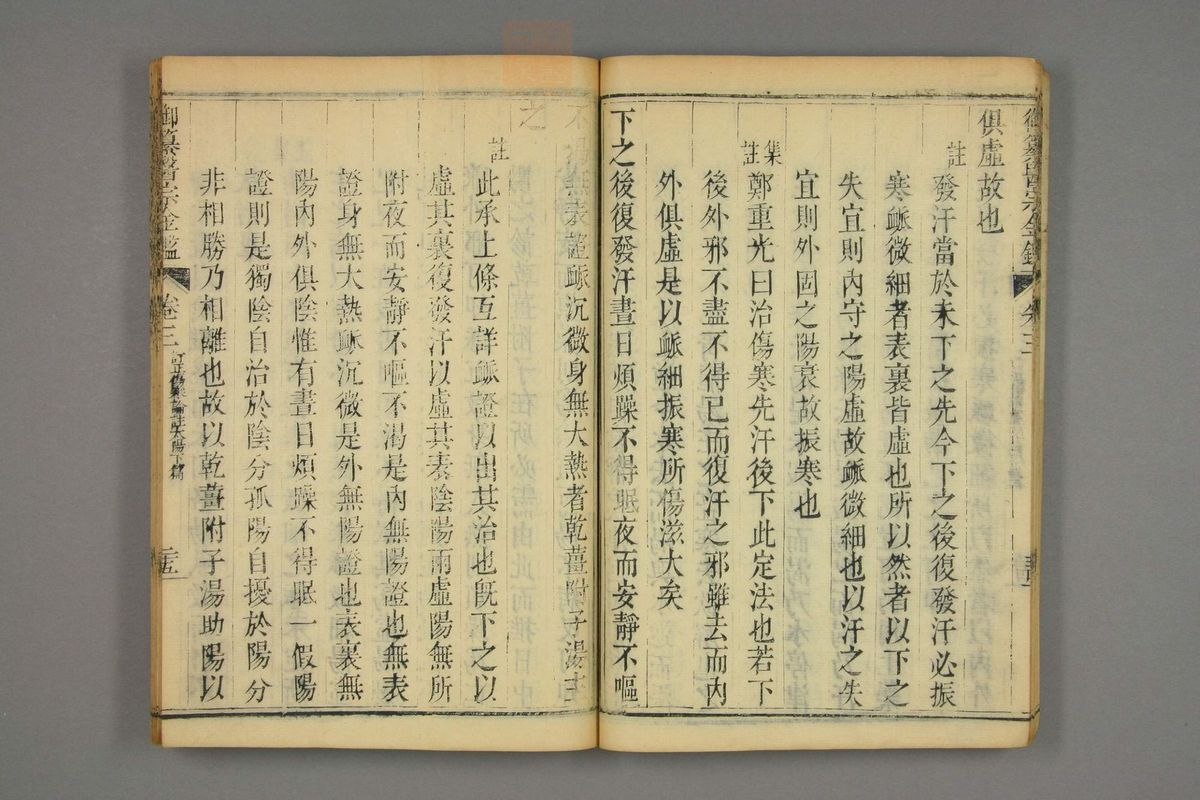 俱虛故也
註
發汗當於未下之先今下之後復發汗必振
寒脈微細者表裏皆虛也所以然者以下之
失宜則內守之陽虛故脈微細也以汗之失
宜則外固之陽衰故振寒也
集註
鄭重光曰治傷寒先汗後下此定法也若下
後外邪不盡不得已而復汗之邪雖去而內
外俱虛是以脈細振寒所傷滋大矣
下之後復發汗晝日煩躁不得眠夜而安靜不嘔
不渴無表證脈沉微身無大熱者乾薑附子湯主
之
註
此承上條互詳脈證以出其治也既下之以
虛其裏復發汗以虛其表陰陽兩虛陽無所
附夜而安靜不嘔不渴是內無陽證也無表
證身無大熱脈沉微是外無陽證也表裏無
陽內外俱陰惟有晝日煩躁不得眠一假陽
證則是獨陰自治於陰分孤陽自擾於陽分
非相勝乃相離也故以乾薑附子湯助陽以
御纂醫宗金鑑
卷三
訂正傷寒論註太陽下篇